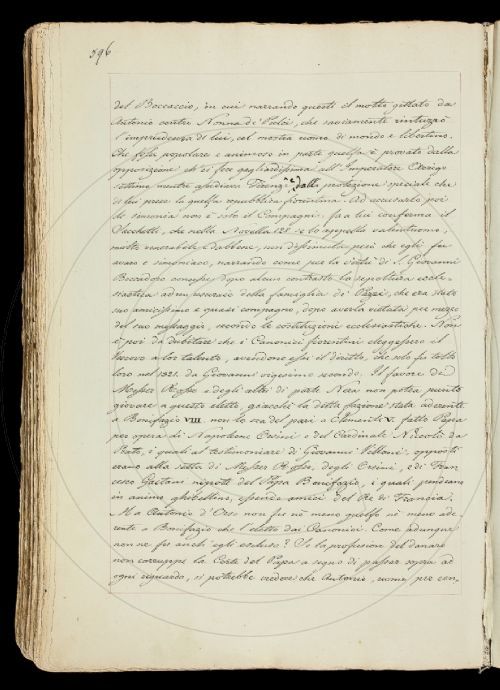 396
del Boccaccio, in cui narrando questi il motto gittato da
Antonio contro Nonna de' Pulci, che saviamente rintuzzò
l'imprudenza di lui, cel mostra uomo di mondo e libertino.
Che fosse popolare e animoso in parte guelfa è provato dalla
opposizione ch'ei fece gagliardissima all'Imperatore Enrigo
settimo mentre assediava Firenze, e dalla protezione speciale che
di lui prese la guelfa repubblica fiorentina. Ad accusarlo poi
di simonia non è solo il Compagni: fa a lui conferma il
Sacchetti, che nella Novella 128 se lo appella valentuomo,
molto venerabile e dabbene, non dissimula però che egli fu
avaro e simoniaco, narrando come per la virtù di S. Giovanni
Boccadoro concesse dopo alcun contrasto la sepoltura eccle-
siastica ad un usuraio della famiglia di' Pazzi, che era stato
suo amicissimo e quasi compagno, dopo averla vietata per mezzo
del suo messaggio, secondo le costituzioni ecclesiastiche. Non
è poi da dubitare che i Canonici fiorentini eleggessero il
Vescovo a lor talento, avendone essi il diritto, che solo fu tolto
loro nel 1321. da Giovanni vigesimo secondo. Il favore di
Messer Rosso e degli altri di parte Nera non potea punto
giovare a questo eletto, giacchè la detta fazione stata aderente
a Bonifazio VIII. non lo era del pari a Clemente V. fatto Papa
per opera di Napoleone Orsini e del Cardinale Niccolò da
Prato, i quali al testimoniare di Giovanni Villani, opposti
erano alla setta di Messer Rosso, degli Orsini, e di Fran-
cesco Gaetani nipote del Papa Bonifazio, i quali pendeano
in animo ghibellino, essendo amici del Re di Francia.
Ma Antonio d'Orso non fu nè meno guelfo nè meno ade-
rente a Bonifazio che l'eletto dai Canonici. Come adunque
non ne fu anch'egli escluso? Se la profusione del danaro
non corruppe la Corte del Papa a segno di passar sopra ad
ogni riguardo, si potrebbe credere che Antonio, uomo per con,